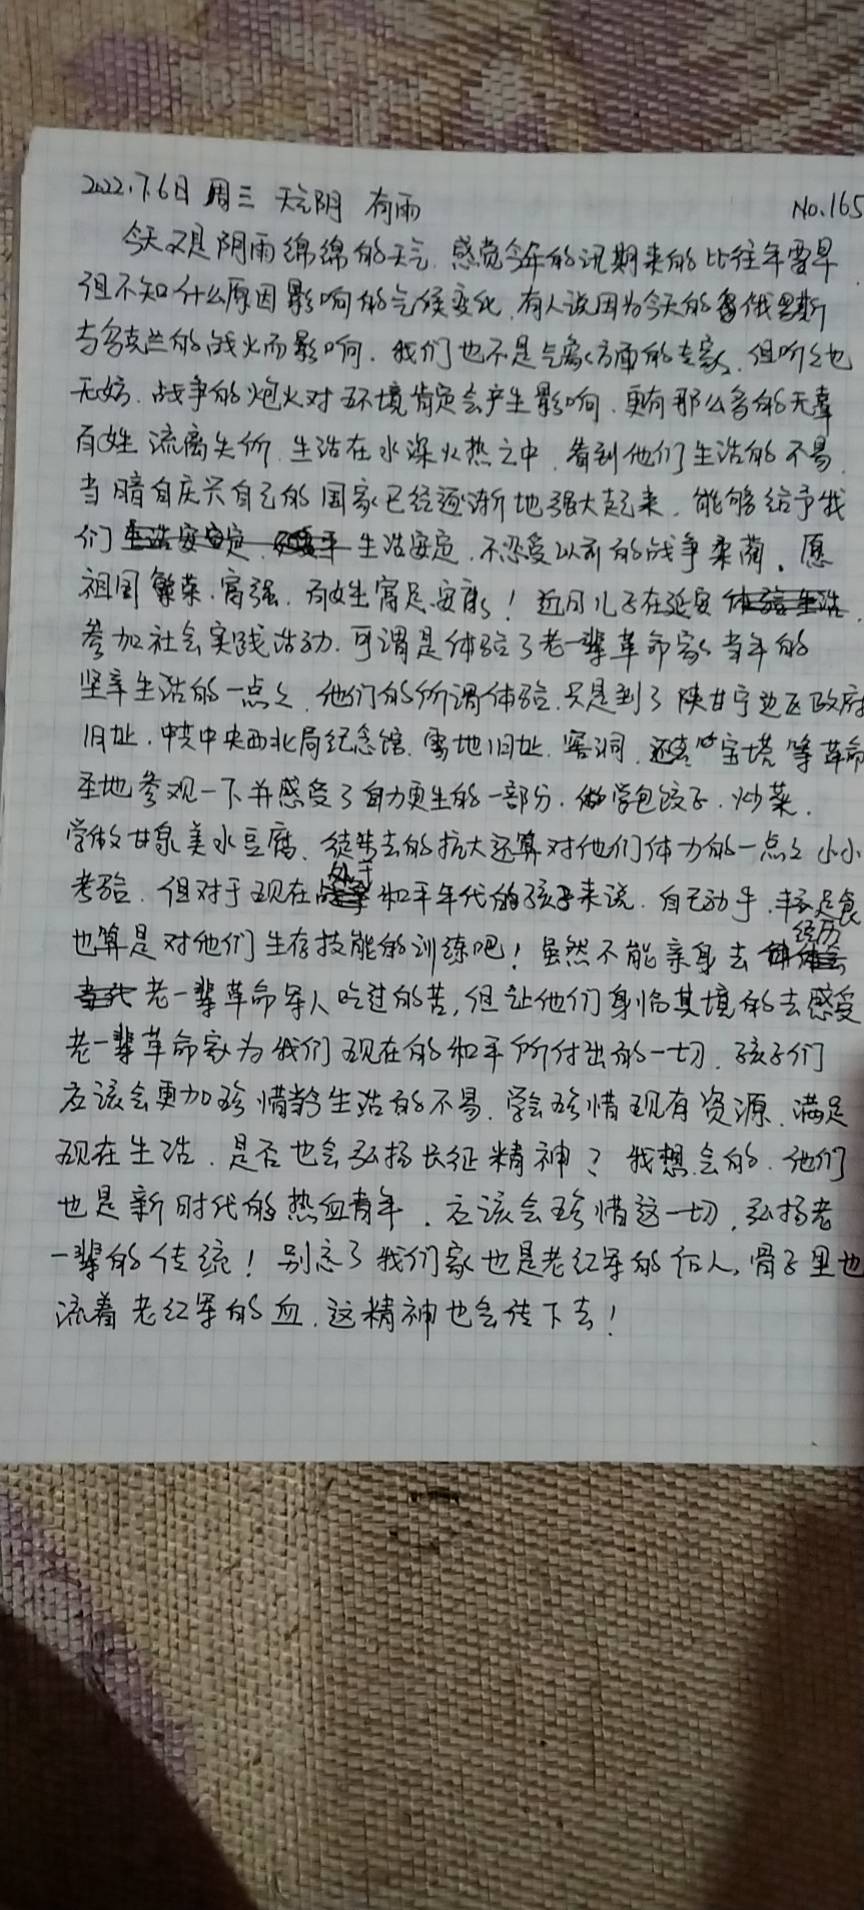 2022.7.6日 周三 天气阴 有雨
No.165
今天又是阴雨绵绵的天气.感觉今年的汛期来的比往年要早
但不知什么原因影响的气候变化,有人说因为今天的俄罗斯
与乌克兰的战火而影响.我们也不是气象方面的专家.但听之也
无妨.战争的炮火对环境肯定会产生影响.更有那么多的无辜
百姓流离失所.生活在水深火热之中.看到他们生活的不易.
当暗自庆兴自己的国家已经逐渐地强大起来.能够给予我
们生活安定.不必受以前的战争荼蔺.愿
祖国繁荣.富强.百姓富足.安康!近日儿子在延安
参加社会实践活动.可谓是体验了老一辈革命家当年的
坚辛生活的一点之.他们的所谓体验.只是到了陕甘宁边区政府
旧址.中共中央西北局纪念馆.旧址.窑洞.宝塔等革命
圣地参观一下并感受了自力更生的一部分.学包饺子.炒菜.
学做甘泉美水豆腐.徒步去的抗大还算对他们体力的一点之小小
考验.但对于现在处于和平年代的孩子来说.自己动手.丰衣足食
也算是对他们生存技能的训练吧!虽然不能亲身去经历
老一辈革命军人吃过的苦,但让他们身临其境的去感受
老一辈革命家为我们现在的和平所付出的一切.孩子们
应该会更加珍惜生活的不易.学会珍惜现有资源.满足
现在生活.是否也会弘扬长征精神?我想会的.他们
也是新时代的热血青年.应该会珍惜这一切.弘扬老
一辈的传统!别忘了我们家也是老红军的后人,骨子里也
流着老红军的血.这精神也会传下去!